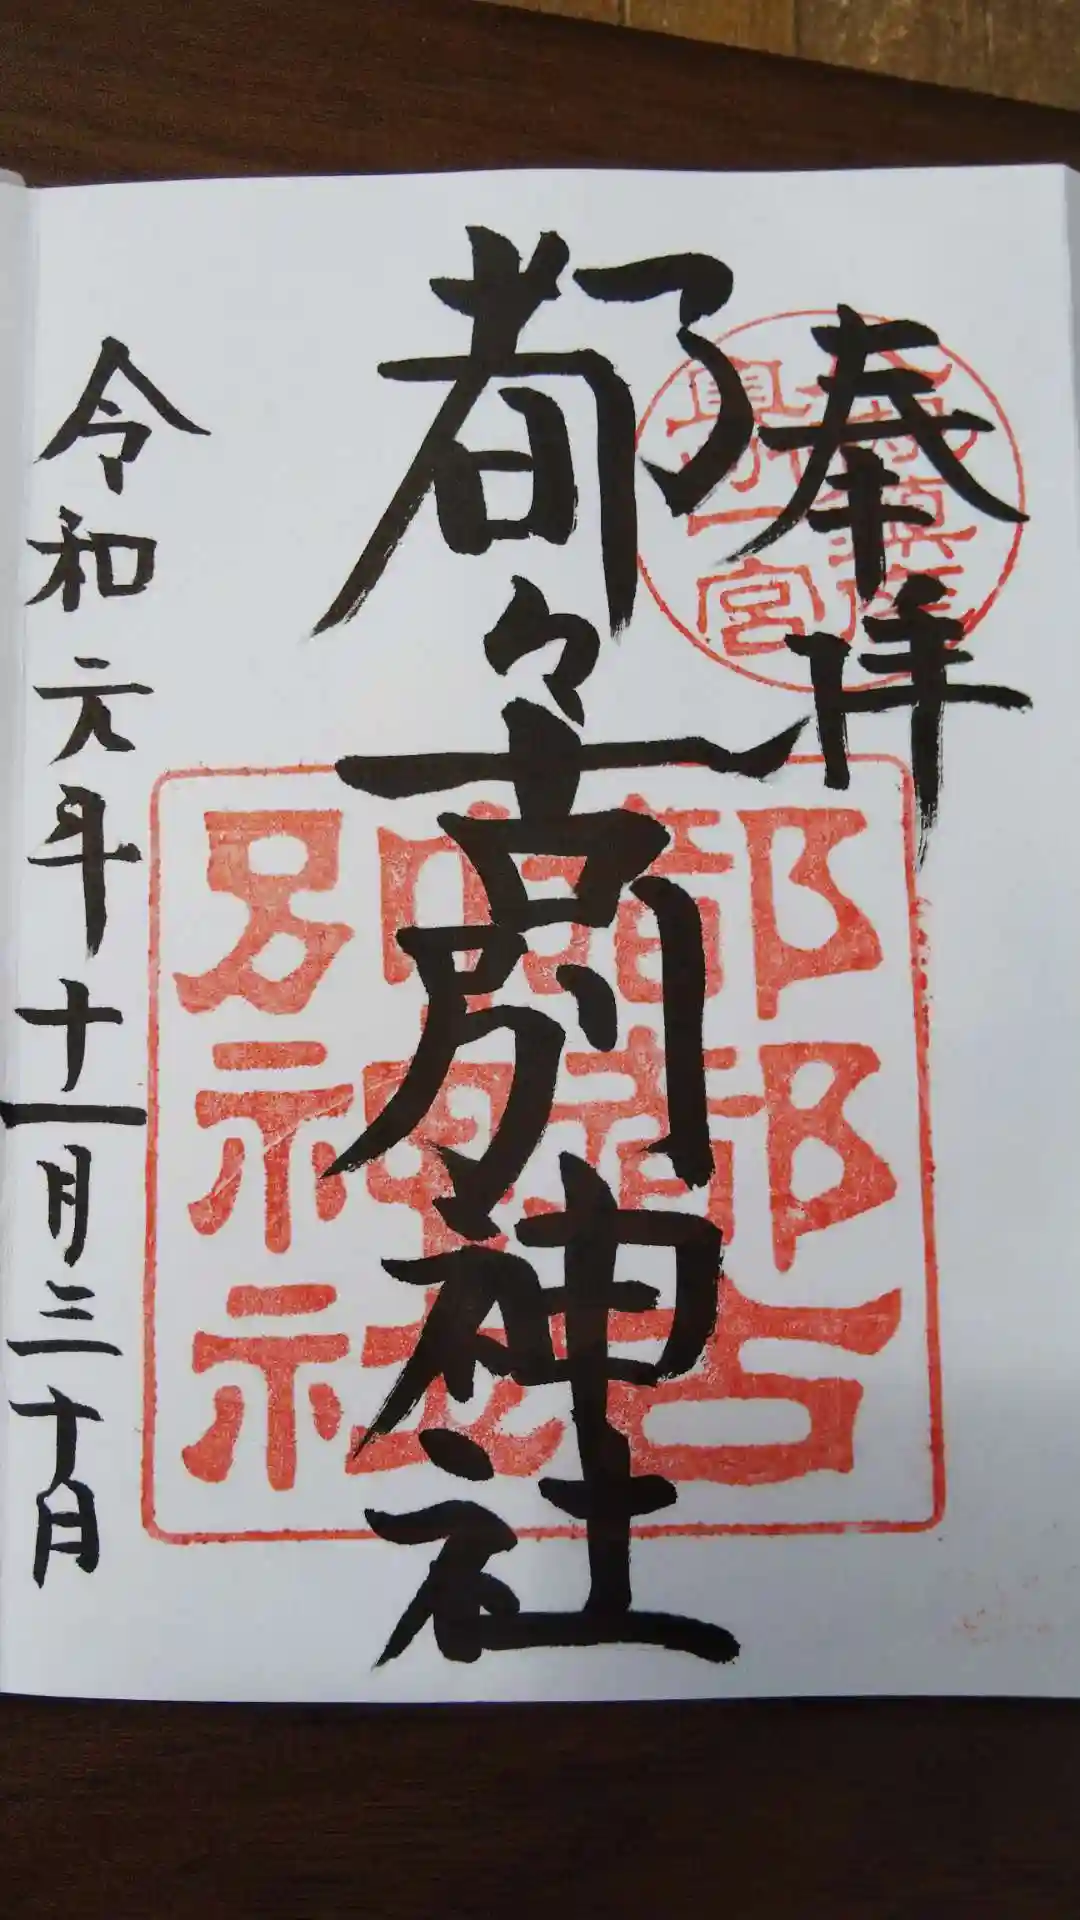 奉拝
都々古別神社
令和元年十一月三十日
奥州一宮
都都古
別神社